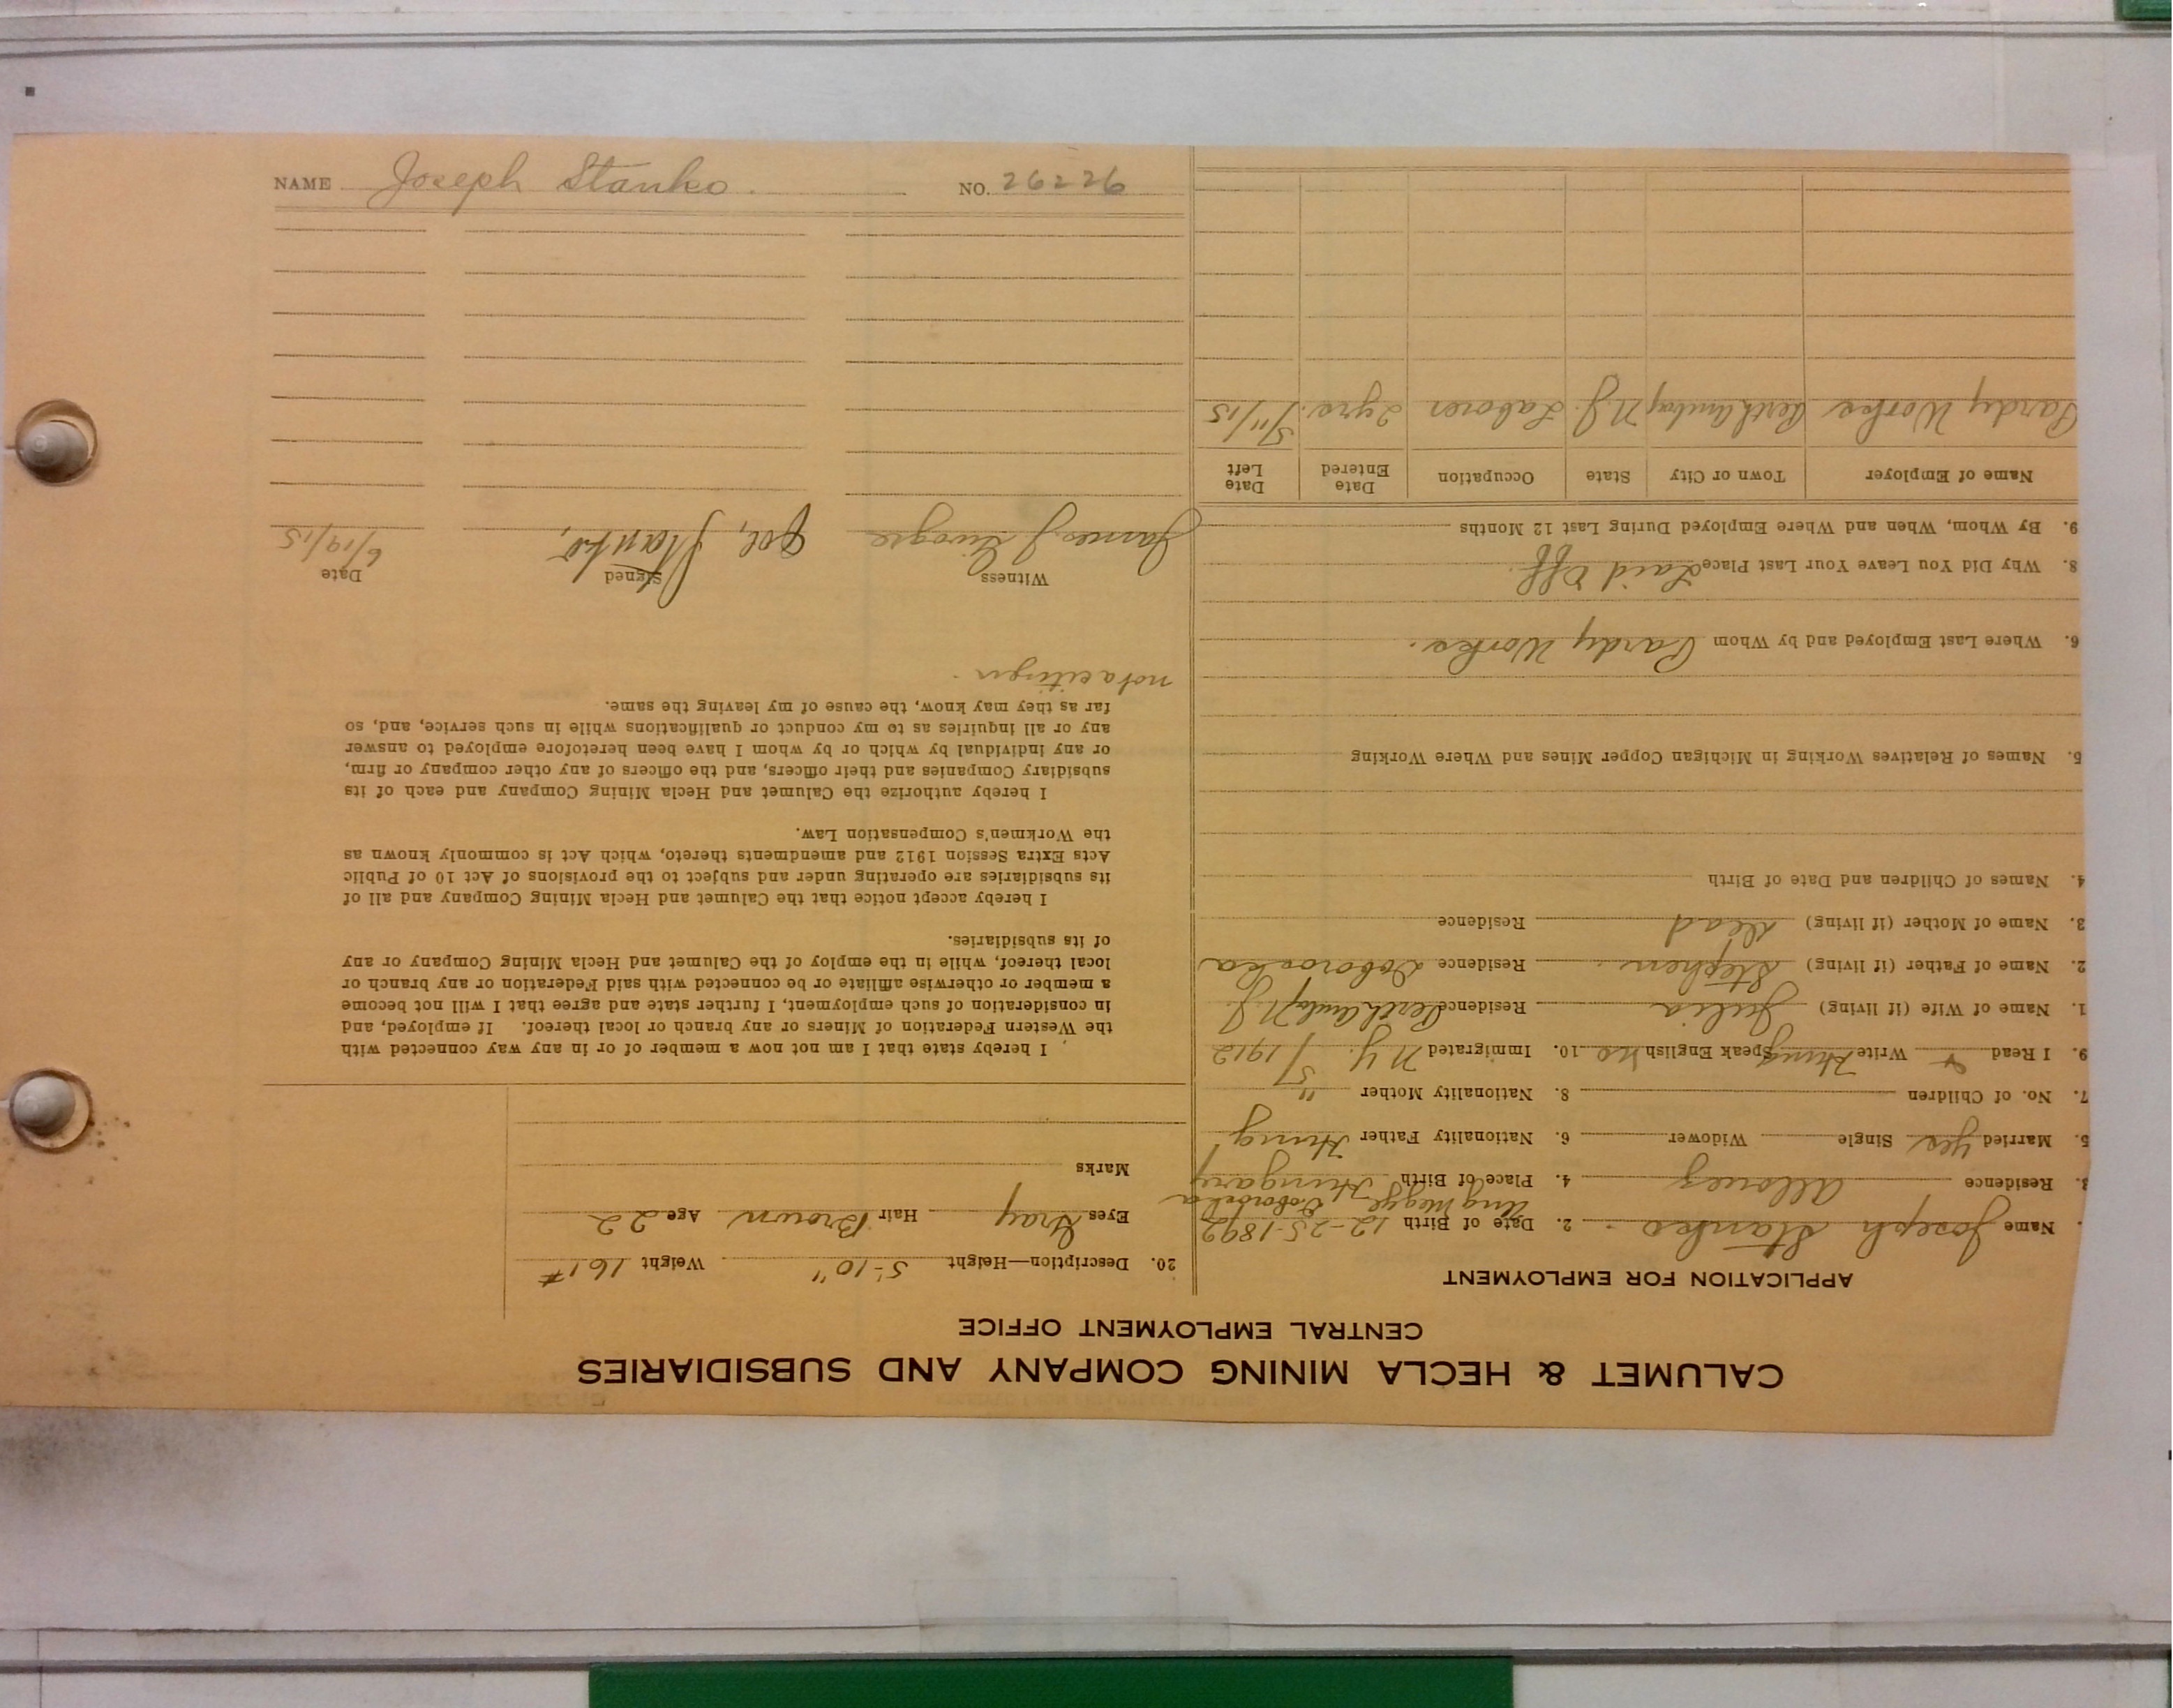 CALUMET & HECLA MINING COMPANY AND SUBSIDIARIES
CENTRAL EMPLOYMENT OFFICE
APPLICATION FOR EMPLOYMENT
. Name Joseph Stanko. 2. Date of Birth 12-25-1892
Ung Megye Doboroska
3. Residence Allouez 4. Place of Birth Hungary
5. Married Yes Single Widower 6. Nationality Father Hung
7. No. of Children 8. Nationality Mother "
9. I Read & Write Hung Speak English no 10. Immigrated N.Y. 5/1912
1. Name of Wife (if living) Julia Residence Perth Amboy N.J.
2. Name of Father (if living) Stephen. Residence Doboroska
3. Name of Mother (if living) dead Residence
4. Names of Children and Date of Birth
5. Names of Relatives Working in Michigan Copper Mines and Where Working
6. Where Last Employed and by Whom Pardy Works.
8. Why Did You Leave Your Last Place Laid Off.
9. By Whom, When and Where Employed During Last 12 Months
Name of Employer Town or City State Occupation Date Entered Date Left
Pardy Works Perth Amboy N.J. Laborer 2 yrs. 5/11/15
20. Description—Height 5'-10" Weight 161#
Eyes Gray Hair Brown Age 22
Marks
I hereby state that I am not now a member of or in any way connected with
the Western Federation of Miners or any branch or local thereof. If employed, and
in consideration of such employment, I further state and agree that I will not become
a member or otherwise affiliate or be connected with said Federation or any branch or
local thereof, while in the employ of the Calumet and Hecla Mining Company or any
of its subsidiaries.
I hereby accept notice that the Calumet and Hecla Mining Company and all of
its subsidiaries are operating under and subject to the provisions of Act 10 of Public
Acts Extra Session 1912 and amendments thereto, which Act is commonly known as
the Workmen's Compensation Law.
I hereby authorize the Calumet and Hecla Mining Company and each of its
subsidiary Companies and their officers, and the officers of any other company or firm,
or any individual by which or by whom I have been heretofore employed to answer
any or all inquiries as to my conduct or qualifications while in such service, and, so
far as they may know, the cause of my leaving the same.
not a citizen.
Witness Signed Date
James J. Joe, Stanko, 6/19/15
NAME Joseph Stanko. NO. 26226